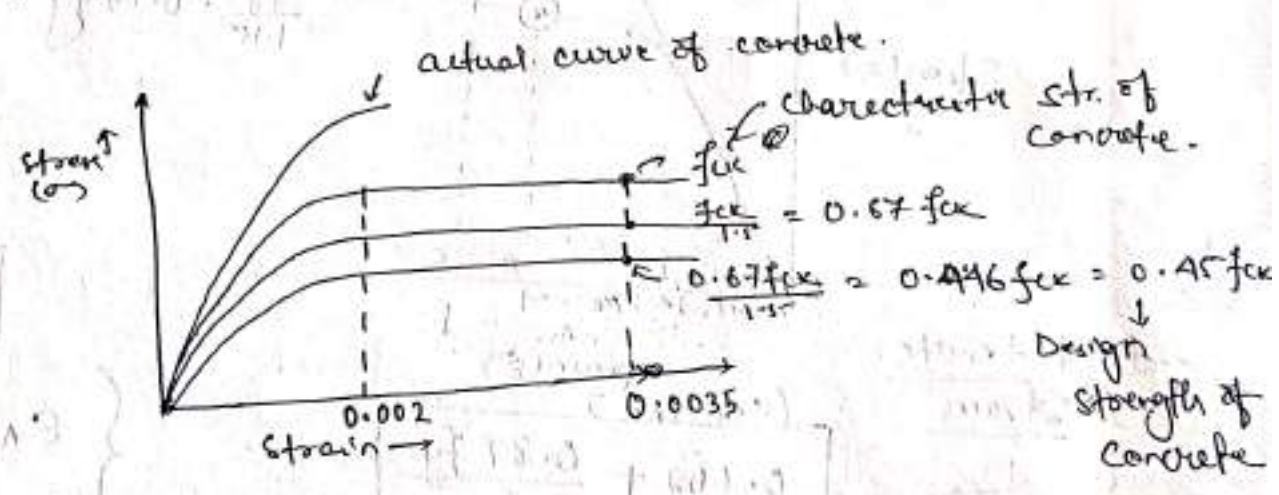 actual curve of concrete.
Charectreistic str. of
concrete.
stress↑
(σ)
fck
fck/1.5 = 0.67 fck
0.67fck/1.5 = 0.446 fck = 0.45 fck
↓
Design
strength of
concrete
0.002
0.0035
strain →